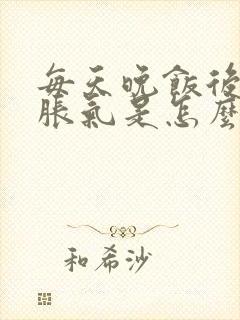 每天晚飯後
脹氣是怎麼
和希沙